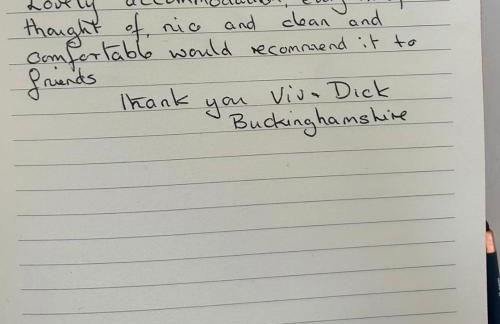 Lovely accommodation, every
thought of, nic and clean and
comfortable would recommend it to
friends
Thank you Viv. Dick
Buckinghamshire